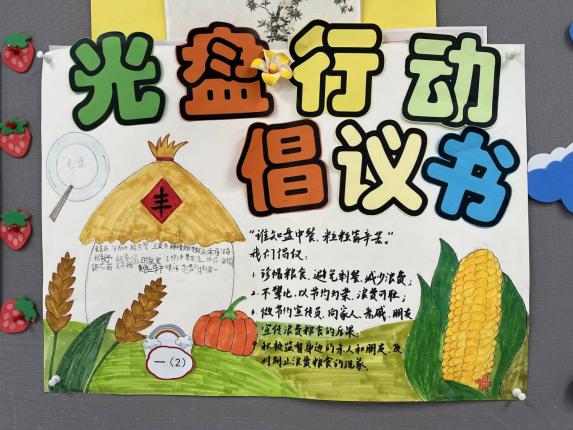 光盘行动
倡议书
光盘
丰
"谁知盘中餐,粒粒皆辛苦。"
我们倡议:
1、珍惜粮食,避免剩餐,减少浪费;
2、不攀比,以节约为荣,浪费可耻;
3、做节约宣传员,向家人、亲戚、朋友
宣传浪费粮食的后果;
4、积极监督身边的亲人和朋友,及
时制止浪费粮食的现象.
一(2)